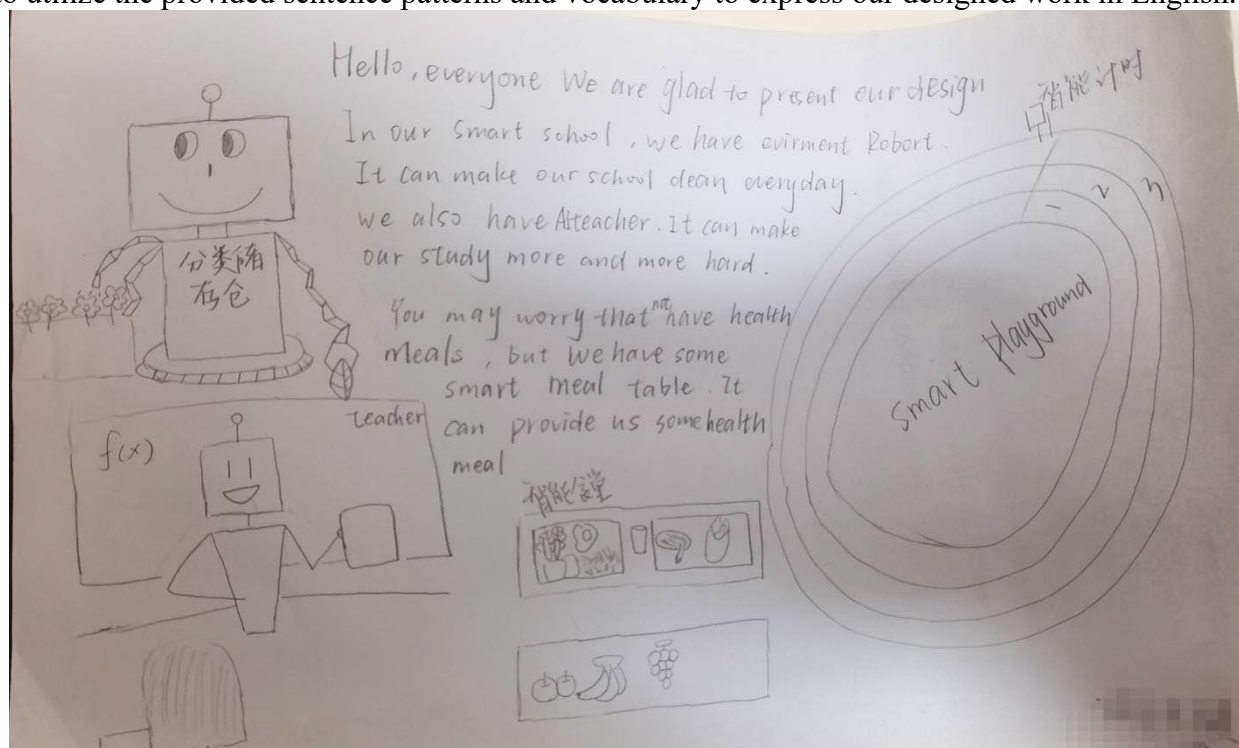 to utilize the provided sentence patterns and vocabulary to express our designed work in English.
Hello, everyone We are glad to present our design
In our smart school, we have evirment Robort.
It can make our school clean everyday.
we also have AIteacher. It can make
our study more and more hard.
You may worry that not have health
meals, but we have some
smart meal table. It
can provide us some health
meal
分类储
存仓
teacher
f(x)
智能食堂
智能计时
1 2 3
Smart playground